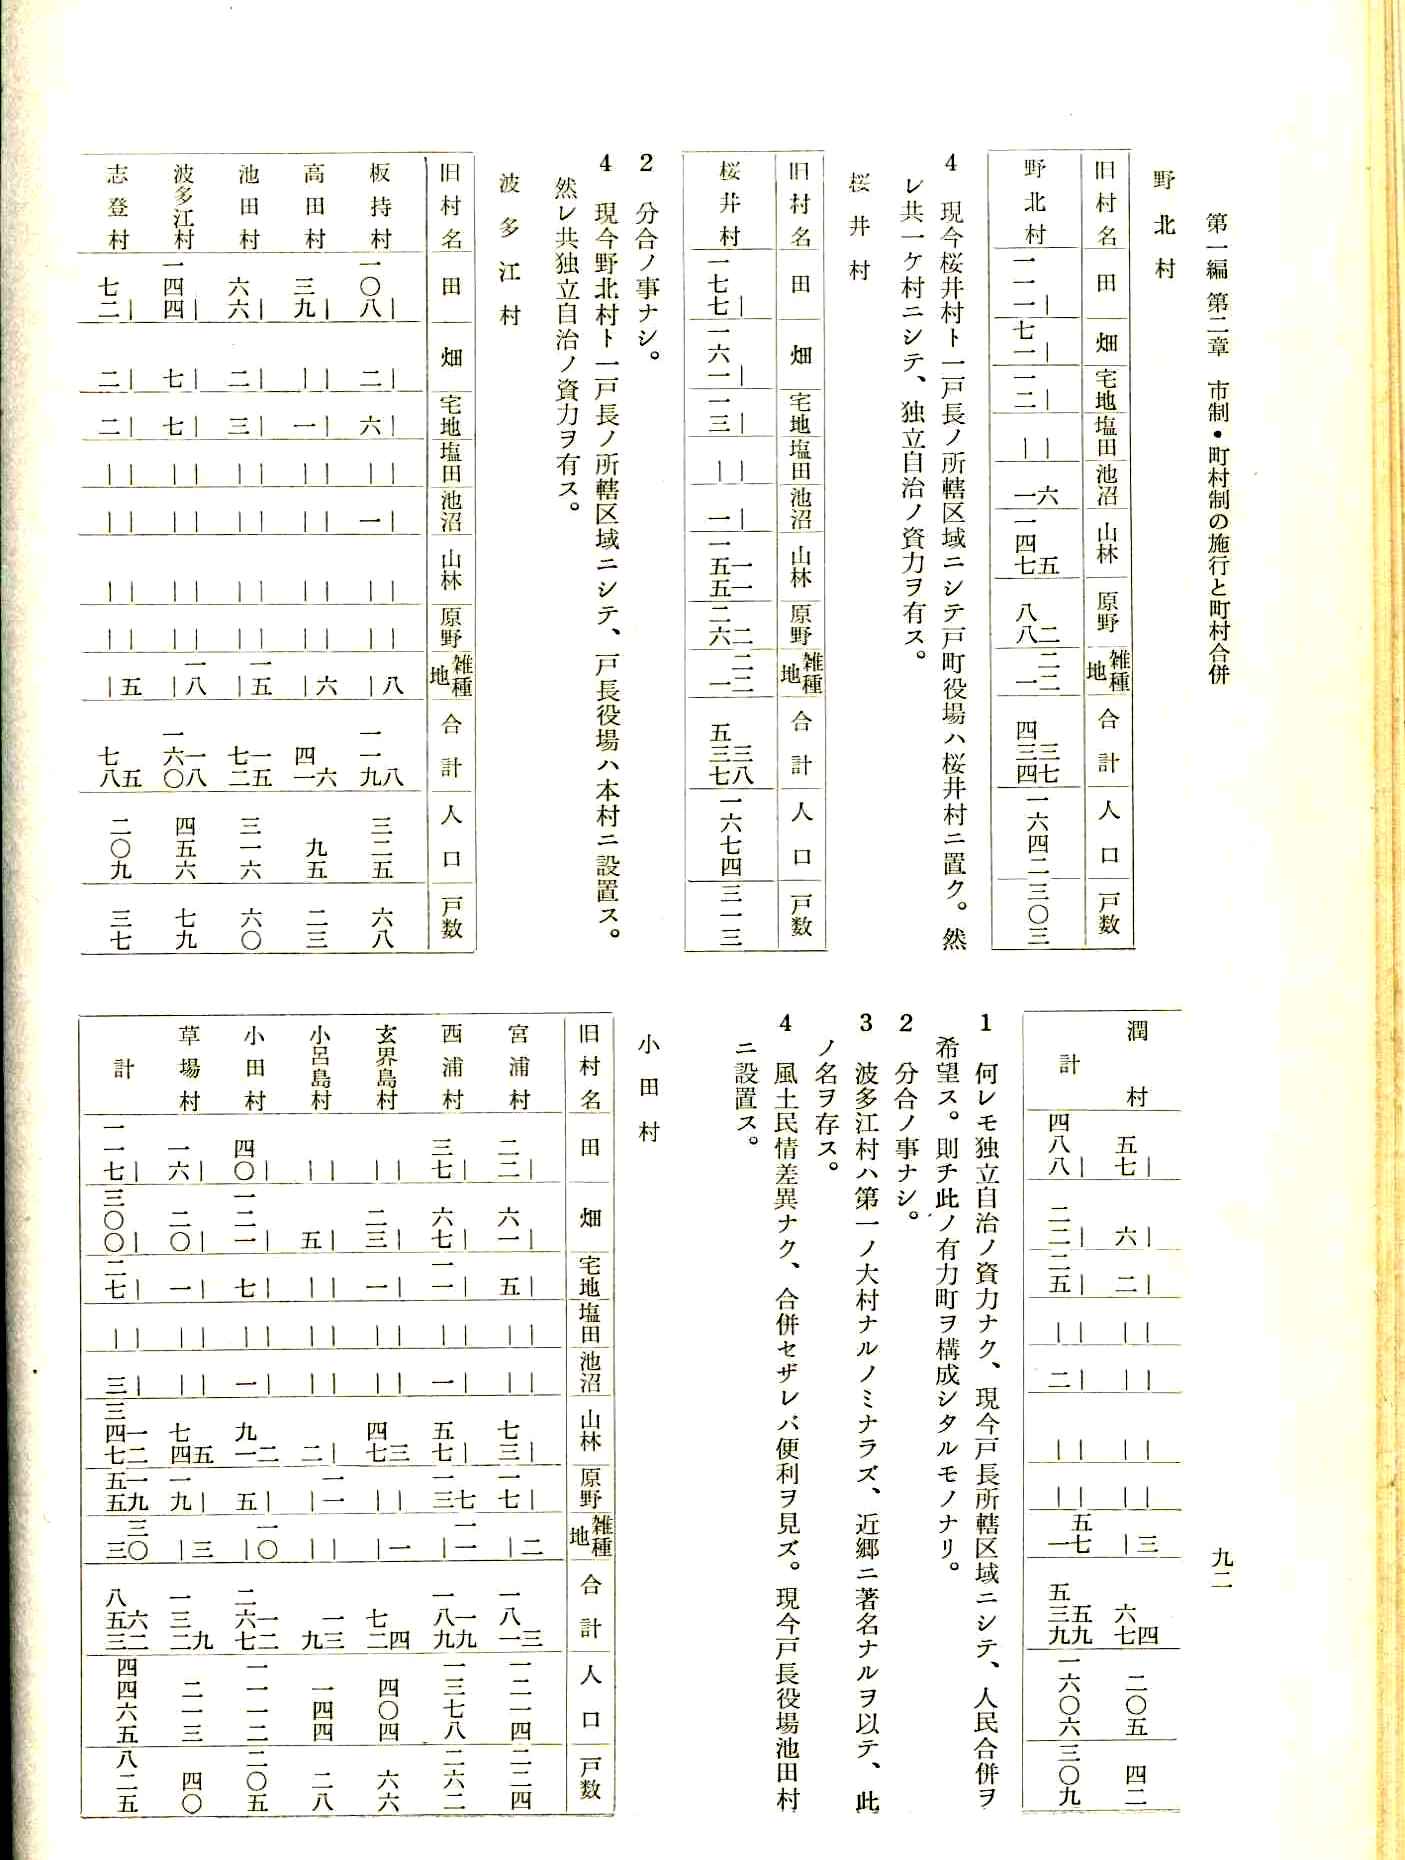 第一編 第二章 市制・町村制の施行と町村合併
九二
野北村
旧村名 田 畑 宅地 塩田 池沼 山林 原野 雑種地 合計 人口 戸数
野北村 ｜ 一一一 ｜ 七一 ｜ 一二 ｜ ｜ 六 一 五 一四七 二 八八 二二 一 三七 四三四 一六四二 三〇三
4 現今桜井村ト一戸長ノ所轄区域ニシテ戸町役場ハ桜井村ニ置ク。然
レ共一ケ村ニシテ、独立自治ノ資力ヲ有ス。
桜井村
旧村名 田 畑 宅地 塩田 池沼 山林 原野 雑種地 合計 人口 戸数
桜井村 ｜ 一七七 ｜ 一六一 ｜ 一三 ｜ ｜ ｜ 一 一一 一五五 二 二六 二二 一 三八 五三七 一六七四 三一三
2 分合ノ事ナシ。
4 現今野北村ト一戸長ノ所轄区域ニシテ、戸長役場ハ本村ニ設置ス。
然レ共独立自治ノ資力ヲ有ス。
波多江村
旧村名 田 畑 宅地 塩田 池沼 山林 原野 雑種地 合計 人口 戸数
板持村 ｜ 一〇八 ｜ 二 ｜ 六 ｜ ｜ ｜ 一 ｜ ｜ ｜ ｜ 八 ｜ 八 一一九 三二五 六八
高田村 ｜ 三九 ｜ ｜ ｜ 一 ｜ ｜ ｜ ｜ ｜ ｜ ｜ ｜ 六 ｜ 六 四一 九五 二三
池田村 ｜ 六六 ｜ 二 ｜ 三 ｜ ｜ ｜ ｜ ｜ ｜ ｜ ｜ 一五 ｜ 一五 七二 三一六 六〇
波多江村 ｜ 一四四 ｜ 七 ｜ 七 ｜ ｜ ｜ ｜ ｜ ｜ ｜ ｜ 一八 ｜ 一八 一六〇 四五六 七九
志登村 ｜ 七二 ｜ 二 ｜ 二 ｜ ｜ ｜ ｜ ｜ ｜ ｜ ｜ 五 ｜ 五 七八 二〇九 三七
潤村 ｜ 五七 ｜ 六 ｜ 二 ｜ ｜ ｜ ｜ ｜ ｜ ｜ ｜ 三 ｜ 四 六七 二〇五 四二
計 ｜ 四八八 ｜ 二二 ｜ 二五 ｜ ｜ ｜ 二 ｜ ｜ ｜ ｜ 五七 一 五九 五三九 一六〇六 三〇九
1 何レモ独立自治ノ資力ナク、現今戸長所轄区域ニシテ、人民合併ヲ
希望ス。則チ此ノ有力町ヲ構成シタルモノナリ。
2 分合ノ事ナシ。
3 波多江村ハ第一ノ大村ナルノミナラズ、近郷ニ著名ナルヲ以テ、此
ノ名ヲ存ス。
4 風土民情差異ナク、合併セザレバ便利ヲ見ズ。現今戸長役場池田村
ニ設置ス。
小田村
旧村名 田 畑 宅地 塩田 池沼 山林 原野 雑種地 合計 人口 戸数
宮浦村 ｜ 二二 ｜ 六一 ｜ 五 ｜ ｜ ｜ ｜ ｜ 七三 ｜ 一七 二 ｜ 三 一八一 一二一四 二二四
西浦村 ｜ 三七 ｜ 六七 ｜ 一一 ｜ ｜ ｜ 一 ｜ 五七 七 一三 一一 ｜ 一九 一八九 一三七八 二六二
玄界島村 ｜ ｜ ｜ 二三 ｜ 一 ｜ ｜ ｜ ｜ 三 四七 ｜ ｜ 一 ｜ 四 七二 四〇四 六六
小呂島村 ｜ ｜ ｜ 五 ｜ ｜ ｜ ｜ ｜ ｜ ｜ 二 一一 ｜ ｜ ｜ 一三 九 一四四 二八
小田村 ｜ 四〇 ｜ 一二一 ｜ 七 ｜ ｜ ｜ 一 二 九一 ｜ 五 一〇 ｜ 一二 二六七 一一一二 二〇五
草場村 ｜ 一六 ｜ 二〇 ｜ 一 ｜ ｜ ｜ ｜ 五 七四 ｜ 一九 三 ｜ 九 一三二 二一三 四〇
計 ｜ 一一七 ｜ 三〇〇 ｜ 二七 ｜ ｜ ｜ 三 一二 三四七 一九 五五 三〇 三 六二 八五三 四四六五 八二五